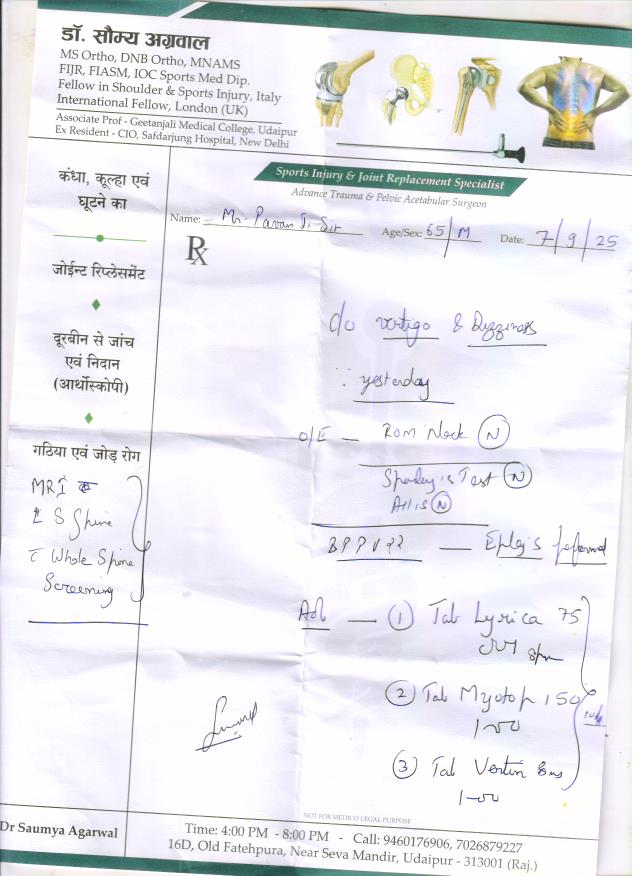 डॉ. सौम्य अग्रवाल
MS Ortho, DNB Ortho, MNAMS
FIJR, FIASM, IOC Sports Med Dip.
Fellow in Shoulder & Sports Injury, Italy
International Fellow, London (UK)
Associate Prof - Geetanjali Medical College, Udaipur
Ex Resident - CIO, Safdarjung Hospital, New Delhi
Sports Injury & Joint Replacement Specialist
Advance Trauma & Pelvic Acetabular Surgeon
Name: Mr. Pavan Ji Sir Age/Sex: 65/M Date: 7/9/25
Rx
कंधा, कूल्हा एवं
घूटने का
जोईन्ट रिप्लेसमेंट
दूरबीन से जांच
एवं निदान
(आर्थोस्कोपी)
गठिया एवं जोड़ रोग
MRI
L S Spine
c Whole Spine
Screening
c/o vertigo & Dizziness
∵ yesterday
O/E — ROM Neck (N)
Test (N)
(N)
BPPV ?? — Epley's performed
Ad — (1) Tab Lyrica 75
8pm
(2) Tab Myotop 150
1-00
(3) Tab Vertin 8mg
1-00
NOT FOR MEDICO LEGAL PURPOSE
Dr Saumya Agarwal
Time: 4:00 PM - 8:00 PM - Call: 9460176906, 7026879227
16D, Old Fatehpura, Near Seva Mandir, Udaipur - 313001 (Raj.)